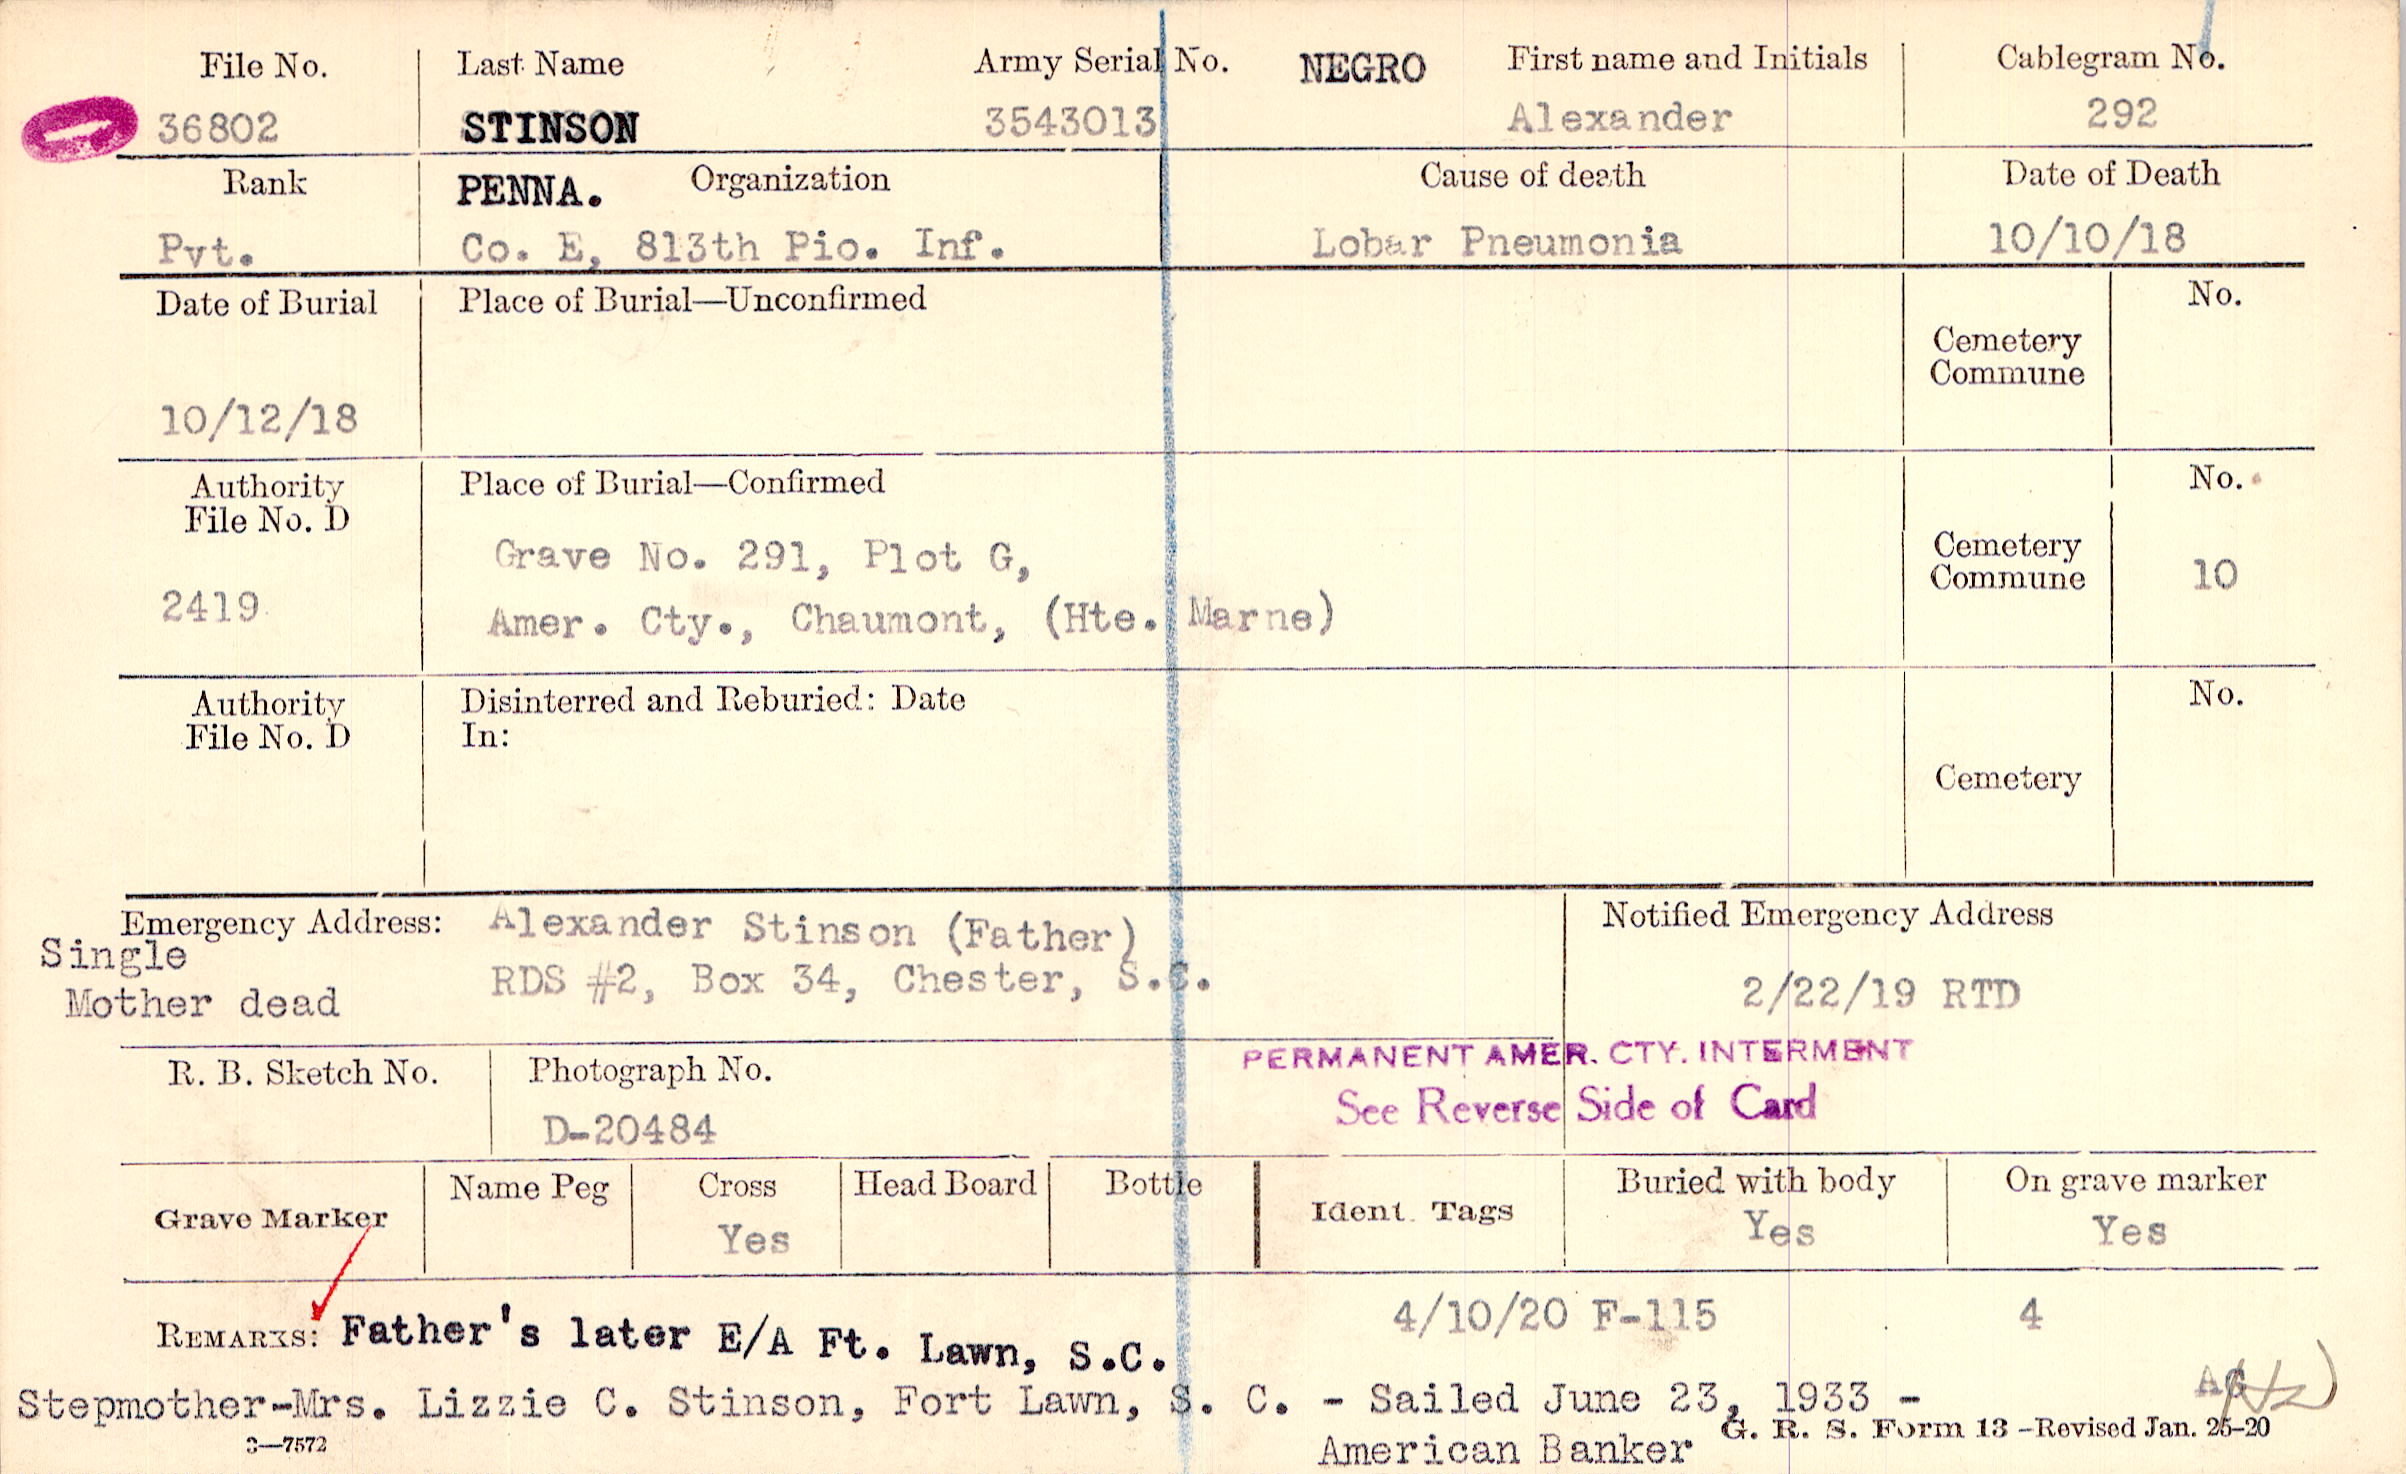 File No. Last Name Army Serial No. NEGRO First name and Initials Cablegram No.
36802 STINSON 3543013 Alexander 292
Rank PENNA. Organization Cause of death Date of Death
Pvt. Co. E, 813th Pio. Inf. Lobar Pneumonia 10/10/18
Date of Burial Place of Burial—Unconfirmed No.
Cemetery
Commune
10/12/18
Authority Place of Burial—Confirmed No.
File No. D
Grave No. 291, Plot G, Cemetery
Commune 10
2419 Amer. Cty., Chaumont, (Hte. Marne)
Authority Disinterred and Reburied: Date No.
File No. D In:
Cemetery
Emergency Address: Alexander Stinson (Father) Notified Emergency Address
Single
RDS #2, Box 34, Chester, S.C. 2/22/19 RTD
Mother dead
PERMANENT AMER. CTY. INTERMENT
R. B. Sketch No. Photograph No.
See Reverse Side of Card
D-20484
Name Peg Cross Head Board Bottle Buried with body On grave marker
Grave Marker Yes Ident. Tags Yes Yes
4/10/20 F-115 4
REMARKS: Father's later E/A Ft. Lawn, S.C.
Stepmother-Mrs. Lizzie C. Stinson, Fort Lawn, S. C. - Sailed June 23, 1933 -
G. R. S. Form 13 -Revised Jan. 26-20
3—7572 American Banker